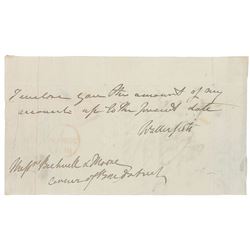 I enclose you the amount of my
account up to the present date
Wellington
Messrs Bicknell & Moore
corner of Bond Street